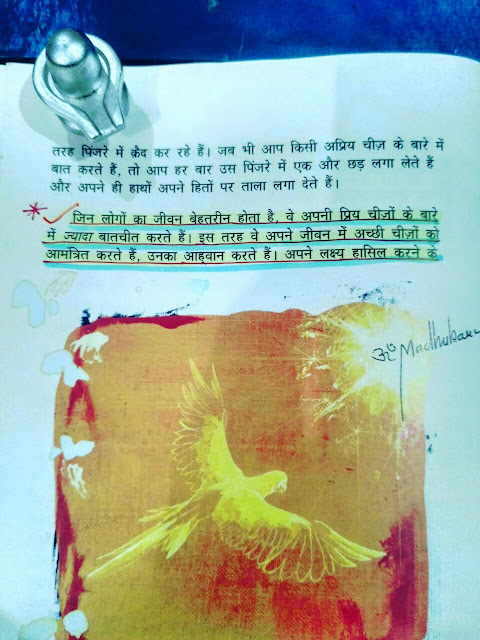 तरह पिंजरे में क़ैद कर रहे हैं। जब भी आप किसी अप्रिय चीज़ के बारे में
बात करते हैं, तो आप हर बार उस पिंजरे में एक और छड़ लगा लेते हैं
और अपने ही हाथों अपने हितों पर ताला लगा देते हैं।
जिन लोगों का जीवन बेहतरीन होता है, वे अपनी प्रिय चीजों के बारे
में ज्यादा बातचीत करते हैं। इस तरह वे अपने जीवन में अच्छी चीज़ों को
आमंत्रित करते हैं, उनका आह्वान करते हैं। अपने लक्ष्य हासिल करने के
ॐ Madhukar